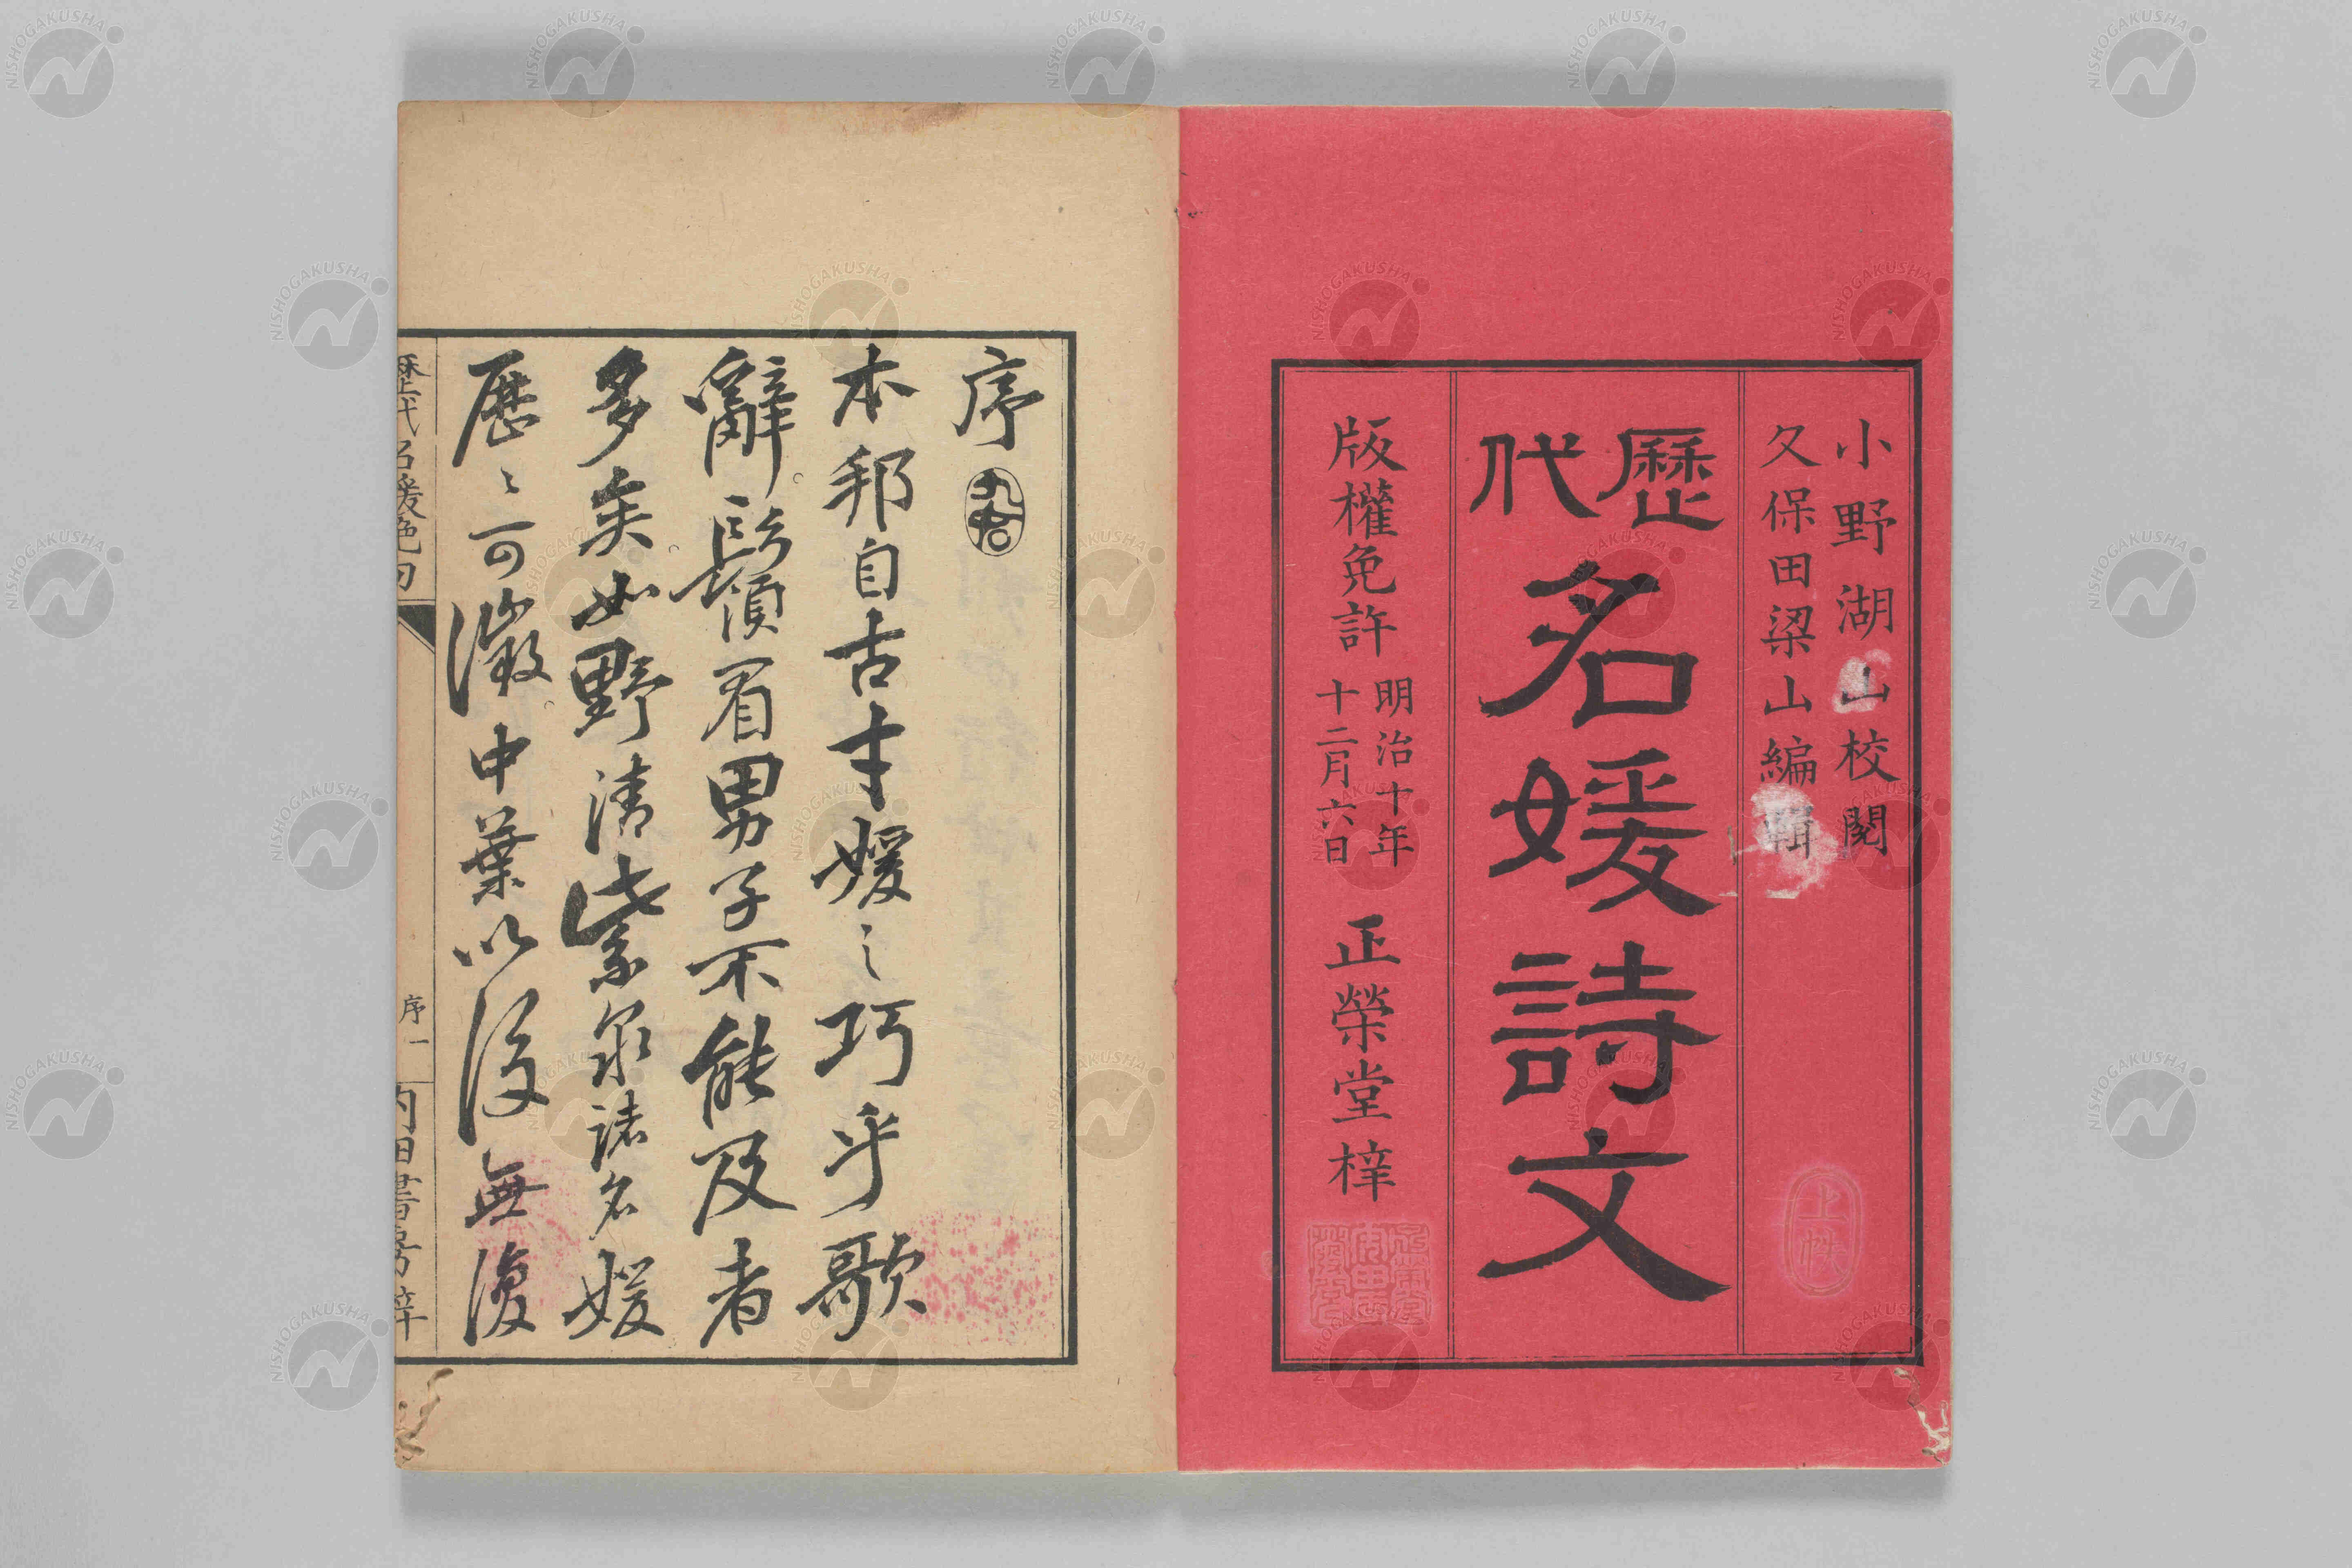 小野湖山校閱
久保田梁山編輯
歷代
名媛詩文
版權免許
明治十年
十二月六日
正榮堂梓
上帙
序
本邦自古才媛之巧乎歌
辭鬚眉男子不能及者
多矣如野清紫泉諸名媛
歷〻可徵中葉以後無復
歷代名媛絶句
序一
内田書房梓
NISHOGAKUSHA